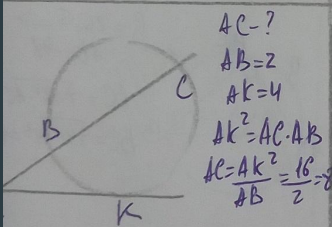 AC-?
AB=2
AK=4
AK²=AC·AB
AC=AK²/AB=16/2=8
C
B
K